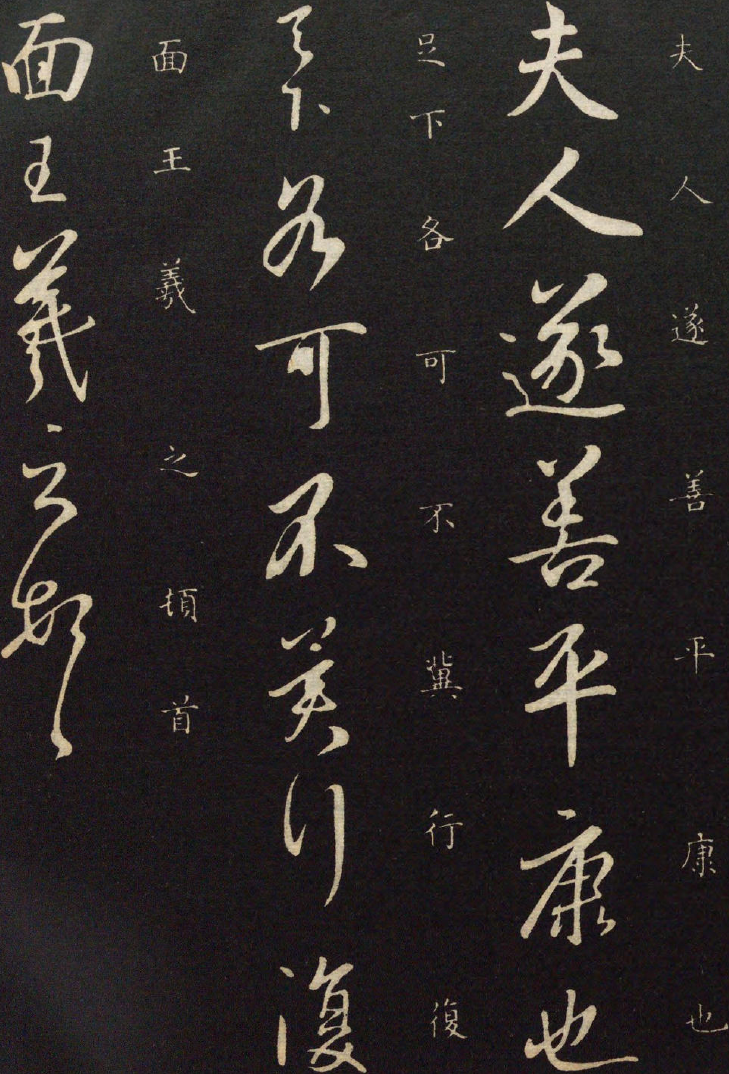 夫人遂善平康也
夫人遂善平康也
足下各可不冀行復
足下各可不冀行復
面王羲之頓首
面王羲之頓首